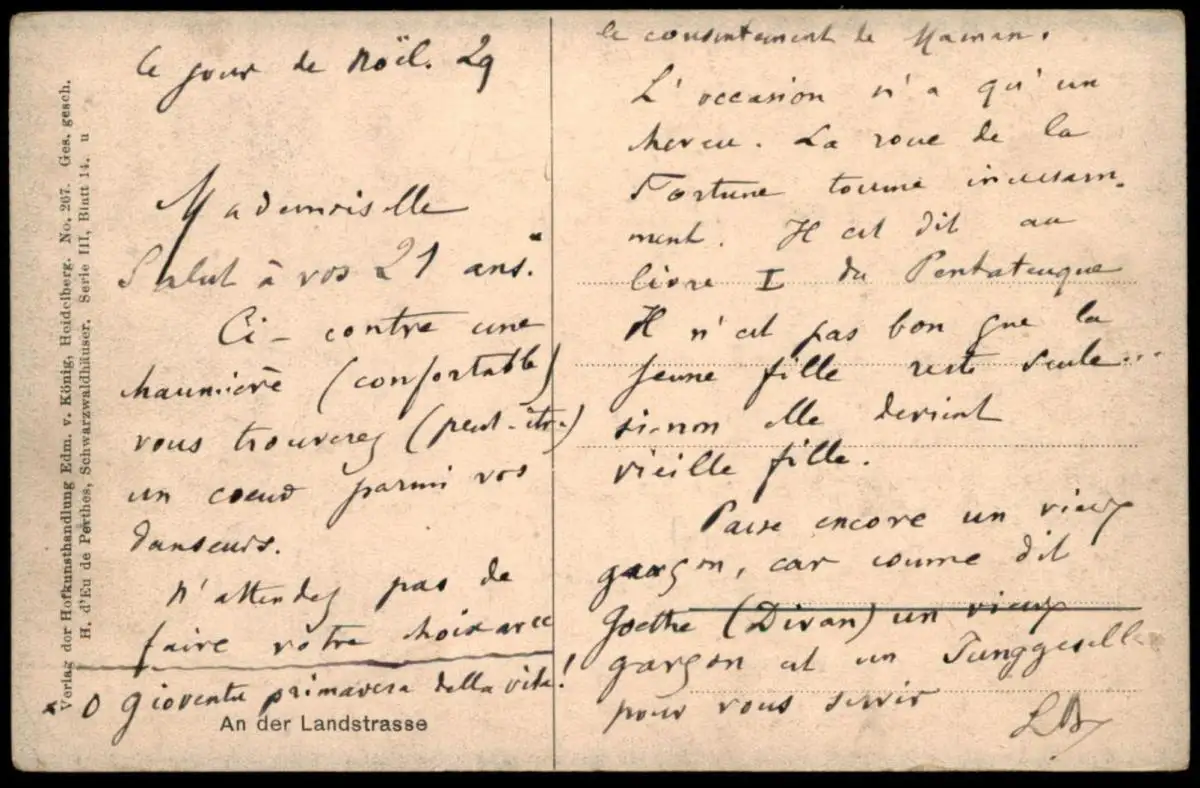 Verlag der Hofkunsthandlung Edm. v. König, Heidelberg. No. 267. Ges. gesch.
H. d'Eu de Perthes, Schwarzwaldhäuser. Serie III, Blatt 14. u
Ce jour de Noël. 29
Mademoiselle
Salut à vos 21 ans.*
Ci-contre une
chaumière (confortable)
vous trouverez (peut-être)
un coeur parmi vos
danseurs.
N'attendez pas de
faire votre choix avec
* O Gioventu primavera della vita!
An der Landstrasse
le consentement de Maman.
L'occasion n'a qu'un
cheveu. La roue de la
Fortune tourne incessam-
ment. Il est dit au
livre I du Pentateuque
Il n'est pas bon que la
jeune fille reste seule...
sinon elle devient
vieille fille.
Passe encore un vieux
garçon, car comme dit
Goethe (Divan) un vieux
garçon est un Junggesell
pour vous servir
LB